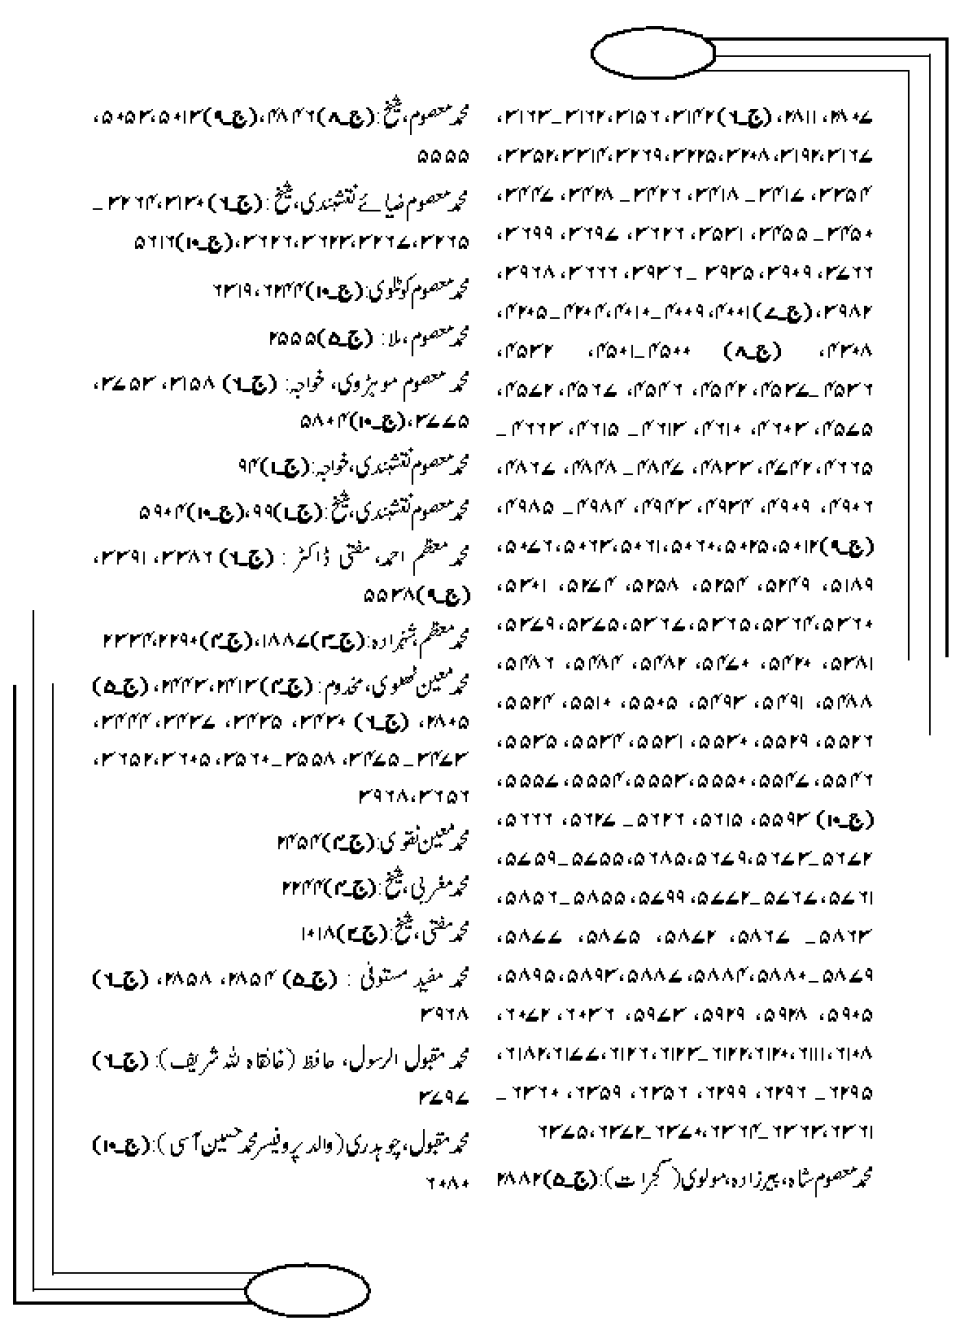 ۲۸۰۷، ۲۸۱۱، (ج_۶) ۳۱۴۲، ۳۱۵۶، ۳۱۶۲_۳۱۶۳،
۳۱۶۷، ۳۱۹۲، ۳۲۰۸، ۳۲۲۵، ۳۲۲۹، ۳۳۱۴، ۳۳۵۲،
۳۳۵۴، ۳۴۱۷_ ۳۴۱۸، ۳۴۲۶_ ۳۴۲۸، ۳۴۴۷،
۳۴۵۰_ ۳۴۵۵، ۳۵۳۱، ۳۶۲۶، ۳۶۹۷، ۳۶۹۹،
۳۷۶۶، ۳۹۰۹، ۳۹۳۵_ ۳۹۳۶، ۳۹۶۶، ۳۹۶۸،
۳۹۸۲، (ج_۷)۴۰۰۱، ۴۰۰۹_۴۰۱۰، ۴۲۰۴_۴۲۰۵،
۴۳۰۸، (ج_۸) ۴۵۰۰_۴۵۰۱، ۴۵۳۲،
۴۵۳۶_۴۵۳۷، ۴۵۴۲، ۴۵۴۶، ۴۵۶۷، ۴۵۷۲،
۴۵۷۵، ۴۶۰۳، ۴۶۱۰، ۴۶۱۳_ ۴۶۱۵، ۴۶۶۳_
۴۶۶۵، ۴۷۴۲، ۴۸۳۳، ۴۸۴۷_ ۴۸۴۸، ۴۸۶۷،
۴۹۰۶، ۴۹۰۹، ۴۹۳۴، ۴۹۴۳، ۴۹۸۴_ ۴۹۸۵،
(ج_۹)۵۰۱۲، ۵۰۲۵، ۵۰۶۰، ۵۰۶۱، ۵۰۶۳، ۵۰۶۷،
۵۱۸۹، ۵۲۴۹، ۵۲۵۴، ۵۲۵۸، ۵۲۷۴، ۵۳۰۱،
۵۳۶۰، ۵۳۶۴، ۵۳۶۵، ۵۳۶۷، ۵۳۷۵، ۵۳۷۹،
۵۳۸۱، ۵۴۲۰، ۵۴۷۰، ۵۴۸۲، ۵۴۸۴، ۵۴۸۶،
۵۴۸۸، ۵۴۹۱، ۵۴۹۳، ۵۵۰۵، ۵۵۱۰، ۵۵۲۴،
۵۵۲۶، ۵۵۲۹، ۵۵۳۰، ۵۵۳۱، ۵۵۳۴، ۵۵۳۵،
۵۵۴۶، ۵۵۴۷، ۵۵۵۰، ۵۵۵۳، ۵۵۵۴، ۵۵۵۷،
(ج_۱۰) ۵۵۹۳، ۵۶۱۵، ۵۶۲۶_ ۵۶۲۷، ۵۶۶۶،
۵۶۷۲_۵۶۷۳، ۵۶۷۹، ۵۶۸۵، ۵۷۵۵_۵۷۵۹،
۵۷۶۱، ۵۷۶۷_۵۷۷۲، ۵۷۹۹، ۵۸۵۵_۵۸۵۶،
۵۸۶۳_ ۵۸۶۷، ۵۸۷۲، ۵۸۷۵، ۵۸۷۷،
۵۸۷۹_۵۸۸۰، ۵۸۸۴، ۵۸۸۷، ۵۸۹۳، ۵۸۹۵،
۵۹۰۵، ۵۹۲۸، ۵۹۲۹، ۵۹۷۳، ۶۰۳۶، ۶۰۷۲،
۶۱۰۸، ۶۱۱۱، ۶۱۲۰، ۶۱۲۲_۶۱۲۳، ۶۱۲۶، ۶۱۷۷، ۶۱۸۲،
۶۲۹۵_ ۶۲۹۶، ۶۲۹۹، ۶۳۵۶، ۶۳۵۹، ۶۳۶۰_
۶۳۶۱، ۶۳۶۳_۶۳۶۴، ۶۳۷۰، ۶۳۷۲_۶۳۷۵
محمد معصوم شاہ، پیرزادہ، مولوی (گجرات): (ج_۵)۲۸۸۲
محمد معصوم، شیخ: (ج_۸)۴۸۴۶، (ج_۹)۵۰۱۳، ۵۰۵۳،
۵۵۵۵
محمد معصوم ضیائے نقشبندی، شیخ: (ج_۶)۳۱۳۰، ۳۲۶۴_
۳۲۶۵، ۳۲۶۷، ۳۶۲۳، ۳۶۲۶، (ج_۱۰)۵۶۱۶
محمد معصوم کوٹلوی: (ج_۱۰)۶۲۴۴، ۶۳۱۹
محمد معصوم، ملا: (ج_۵)۲۵۵۵
محمد معصوم موہڑوی، خواجہ: (ج_۶) ۳۱۵۸، ۳۷۵۳،
۳۷۷۵، (ج_۱۰)۵۸۰۴
محمد معصوم نقشبندی، خواجہ: (ج_۱)۹۴
محمد معصوم نقشبندی، شیخ: (ج_۱)۹۹، (ج_۱۰)۵۹۰۴
محمد معظم احمد، مفتی ڈاکٹر: (ج_۶) ۳۳۸۶، ۳۳۹۱،
(ج_۹)۵۵۳۸
محمد معظم، شہزادہ: (ج_۳)۱۸۸۷، (ج_۴)۲۲۹۰، ۲۳۳۴
محمد معین ٹھٹھوی، مخدوم: (ج_۴)۲۴۱۳، ۲۴۴۳، (ج_۵)
۲۸۰۵، (ج_۶) ۳۴۳۰، ۳۴۳۵، ۳۴۳۷، ۳۴۴۴،
۳۴۷۳_۳۴۷۵، ۳۵۵۸_۳۵۶۰، ۳۶۰۵، ۳۶۵۲،
۳۶۵۶، ۳۹۶۸
محمد معین نقوی: (ج_۴)۲۴۵۴
محمد مغربی، شیخ: (ج_۴)۲۲۴۴
محمد مفتی، شیخ: (ج_۲)۱۰۱۸
محمد مفید مستوفی: (ج_۵) ۲۸۵۴، ۲۸۵۸، (ج_۶)
۳۹۶۸
محمد مقبول الرسول، حافظ (خانقاہ للہ شریف): (ج_۶)
۳۷۹۷
محمد مقبول، چوہدری (والد پروفیسر محمد حسین آسی): (ج_۱۰)
۶۰۸۰